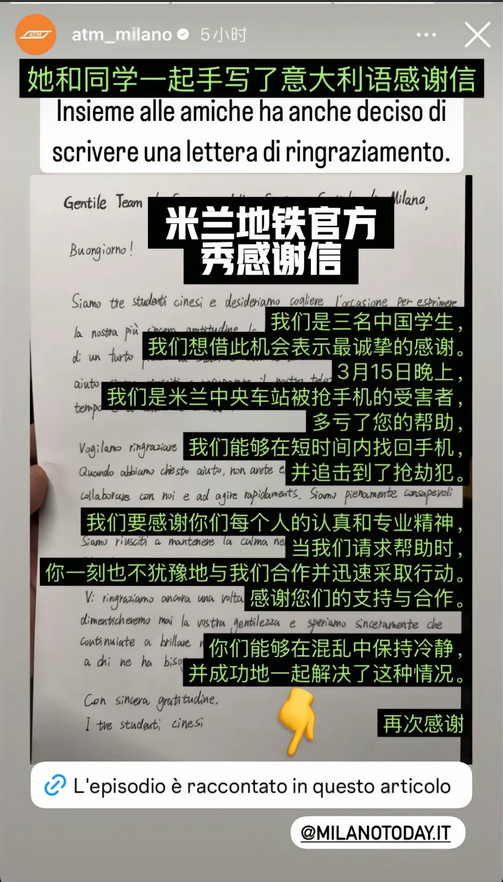 atm_milano 5小时
她和同学一起手写了意大利语感谢信
Insieme alle amiche ha anche deciso di
scrivere una lettera di ringraziamento.
Gentile Team Milano,
米兰地铁官方
秀感谢信
Buongiorno!
Siamo tre studenti cinesi e desideriamo cogliere l'occasione per esprimere
我们是三名中国学生，
la nostra più sincera gratitudine
我们想借此机会表示最诚挚的感谢。
di un furto
3月15日晚上，
aiuto
我们是米兰中央车站被抢手机的受害者，
tempo
多亏了您的帮助，
Vogliamo ringraziare
我们能够在短时间内找回手机，
Quando abbiamo chiesto aiuto, non avete
并追击到了抢劫犯。
collaborare con noi e ad agire rapidamente. Siamo pienamente consapevoli
我们要感谢你们每个人的认真和专业精神，
Siamo riusciti a mantenere la calma
当我们请求帮助时，
你一刻也不犹豫地与我们合作并迅速采取行动。
Vi ringraziamo ancora una volta
感谢您们的支持与合作。
dimenticheremo mai la vostra gentilezza e speriamo sinceramente che
continuiate a brillare
你们能够在混乱中保持冷静，
a chi ne ha
并成功地一起解决了这种情况。
Con sincera gratitudine,
I tre studenti cinesi
再次感谢
L'episodio è raccontato in questo articolo
@MILANOTODAY.IT